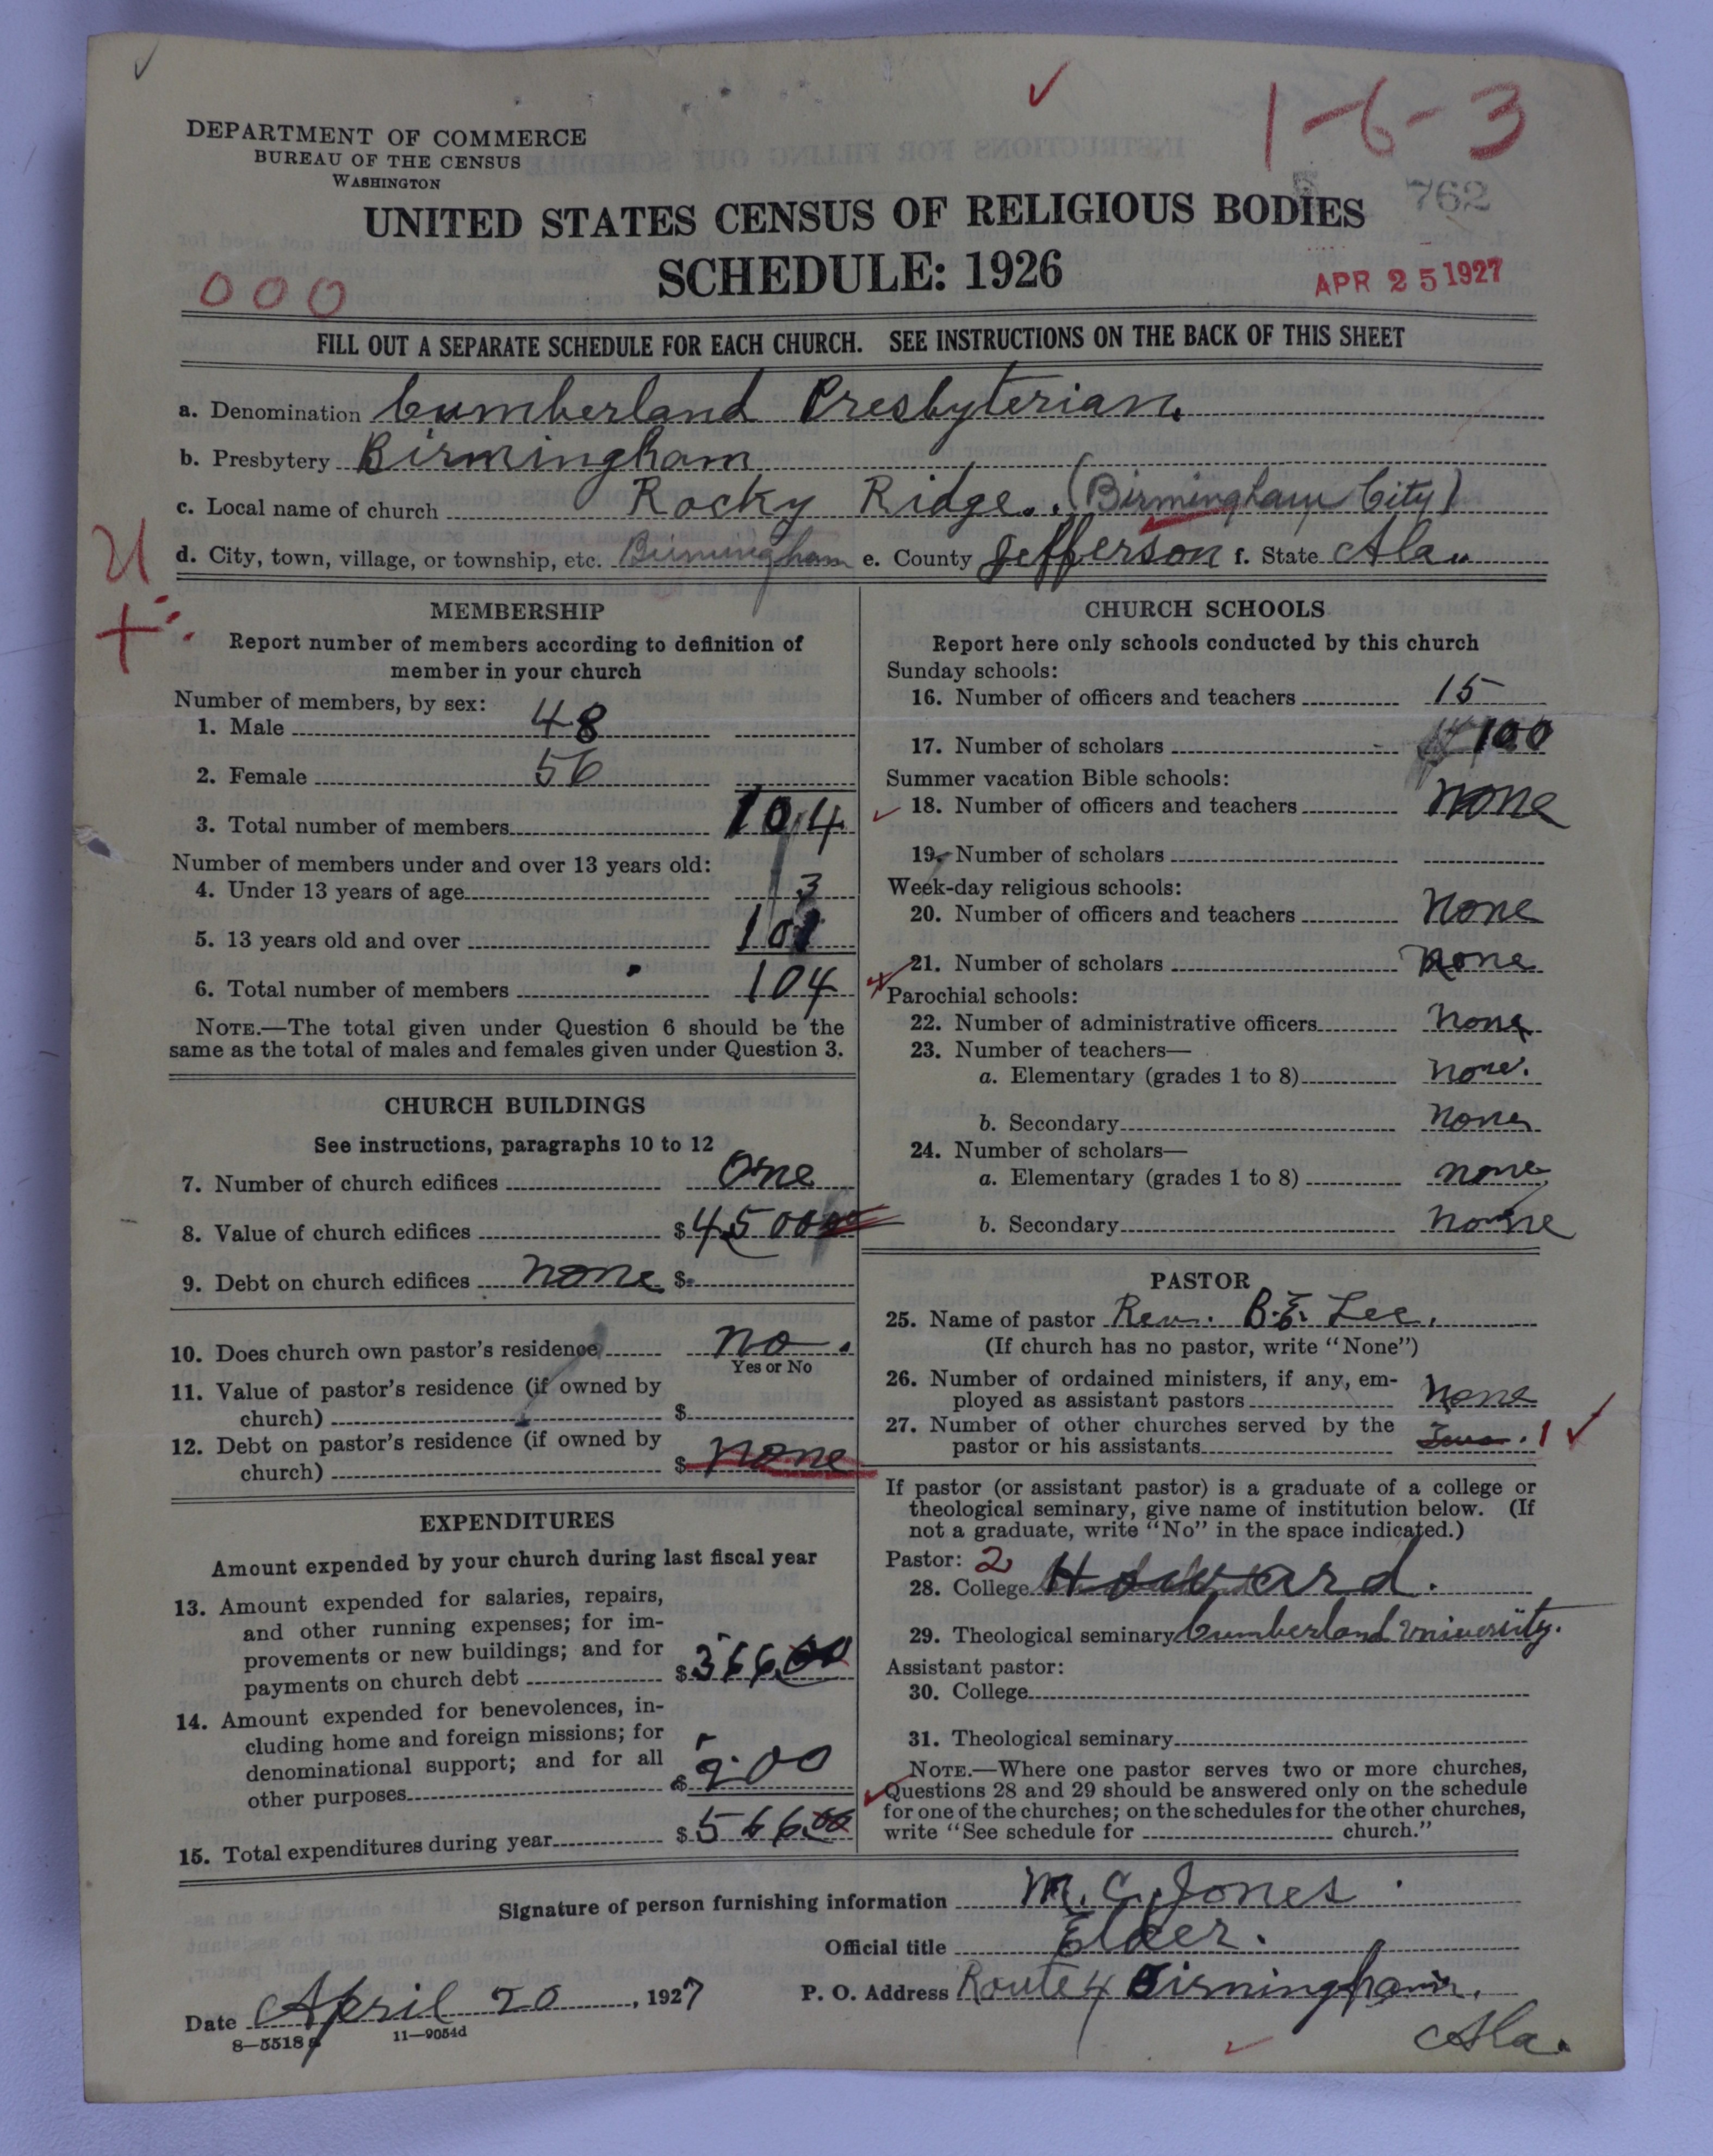 1-6-3
DEPARTMENT OF COMMERCE
BUREAU OF THE CENSUS
WASHINGTON
762
UNITED STATES CENSUS OF RELIGIOUS BODIES
SCHEDULE: 1926
APR 25 1927
000
FILL OUT A SEPARATE SCHEDULE FOR EACH CHURCH. SEE INSTRUCTIONS ON THE BACK OF THIS SHEET
a. Denomination Cumberland Presbyterian.
b. Presbytery Birmingham
c. Local name of church Rocky Ridge. (Birmingham City)
d. City, town, village, or township, etc. Birmingham e. County Jefferson f. State Ala.
MEMBERSHIP
Report number of members according to definition of
member in your church
Number of members, by sex:
1. Male 48
2. Female 56
3. Total number of members 104
Number of members under and over 13 years old:
4. Under 13 years of age 3
5. 13 years old and over 101
6. Total number of members 104
NOTE.—The total given under Question 6 should be the
same as the total of males and females given under Question 3.
CHURCH BUILDINGS
See instructions, paragraphs 10 to 12
7. Number of church edifices One
8. Value of church edifices $4500
9. Debt on church edifices none $
10. Does church own pastor's residence no.
Yes or No
11. Value of pastor's residence (if owned by
church) $
12. Debt on pastor's residence (if owned by
church) $ none
EXPENDITURES
Amount expended by your church during last fiscal year
13. Amount expended for salaries, repairs,
and other running expenses; for im-
provements or new buildings; and for
payments on church debt $366.00
14. Amount expended for benevolences, in-
cluding home and foreign missions; for
denominational support; and for all
other purposes $200
15. Total expenditures during year $566.00
CHURCH SCHOOLS
Report here only schools conducted by this church
Sunday schools:
16. Number of officers and teachers 15
17. Number of scholars 100
Summer vacation Bible schools:
18. Number of officers and teachers none
19. Number of scholars
Week-day religious schools:
20. Number of officers and teachers none
21. Number of scholars none
Parochial schools:
22. Number of administrative officers none
23. Number of teachers—
a. Elementary (grades 1 to 8) none.
b. Secondary none
24. Number of scholars—
a. Elementary (grades 1 to 8) none
b. Secondary none
PASTOR
25. Name of pastor Rev. B.E. Lee.
(If church has no pastor, write "None")
26. Number of ordained ministers, if any, em-
ployed as assistant pastors none
27. Number of other churches served by the
pastor or his assistants 1
If pastor (or assistant pastor) is a graduate of a college or
theological seminary, give name of institution below. (If
not a graduate, write "No" in the space indicated.)
Pastor: 2
28. College Howard.
29. Theological seminary Cumberland University.
Assistant pastor:
30. College
31. Theological seminary
NOTE.—Where one pastor serves two or more churches,
Questions 28 and 29 should be answered only on the schedule
for one of the churches; on the schedules for the other churches,
write "See schedule for church."
Signature of person furnishing information M. C. Jones
Official title Elder.
Date April 20, 1927 P. O. Address Route 4 Birmingham,
Ala.
8—5518 a 11—9054d